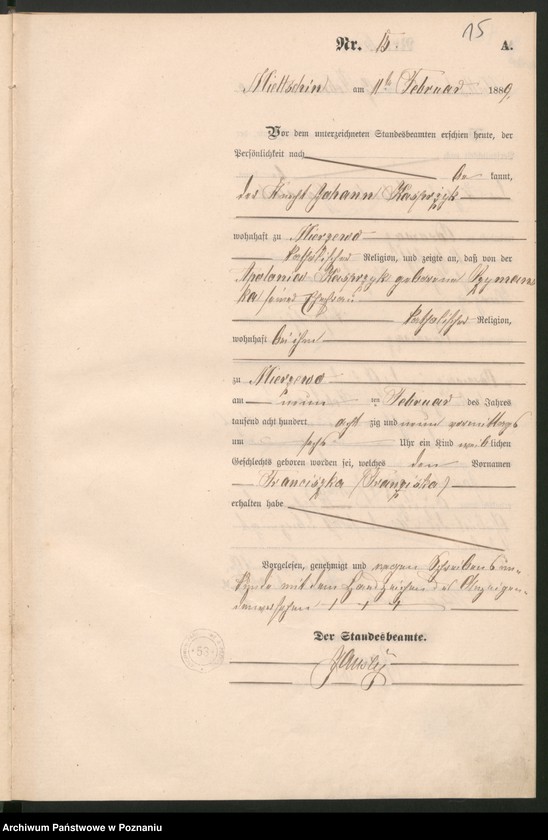 15
Nr. 15. A.
Mieltschin am 11ten Februar 1889
Vor dem unterzeichneten Standesbeamten erschien heute, der
Persönlichkeit nach
be kannt,
der Knecht Johann Kasprzyk
wohnhaft zu Mierzewo
katholischer Religion, und zeigte an, daß von der
Apolonia Kasprzyk geborenen Szymans
ka seiner Ehefrau
katholischer Religion,
wohnhaft bei ihm
zu Mierzewo
am neun ten Februar des Jahres
tausend acht hundert acht zig und neun vormittags
um sechs Uhr ein Kind weib lichen
Geschlechts geboren worden sei, welches den Vornamen
Franciszka (Franziska)
erhalten habe
Vorgelesen, genehmigt und wegen Schreibensun-
kunde mit dem Handzeichen des Anzeigen-
den versehen + + +
Der Standesbeamte.
53
Archiwum Państwowe w Poznaniu